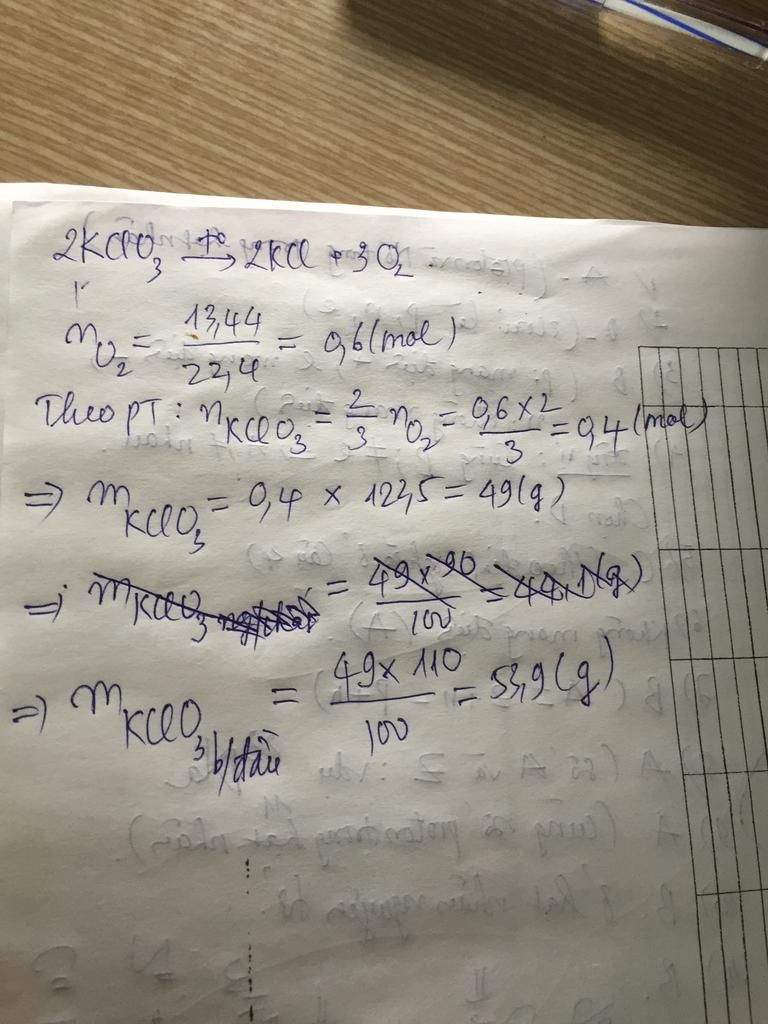 2KClO₃ →(t°) 2KCl + 3O₂
n_O₂ = 13,44/22,4 = 0,6 (mol)
Theo PT : n_KClO₃ = 2/3 n_O₂ = 0,6 × 2/3 = 0,4 (mol)
=> m_KClO₃ = 0,4 × 122,5 = 49 (g)
=> m_KClO₃ = 49 × 90/100 = 44,1 (g)
=> m_KClO₃ b/đầu = 49 × 110/100 = 53,9 (g)